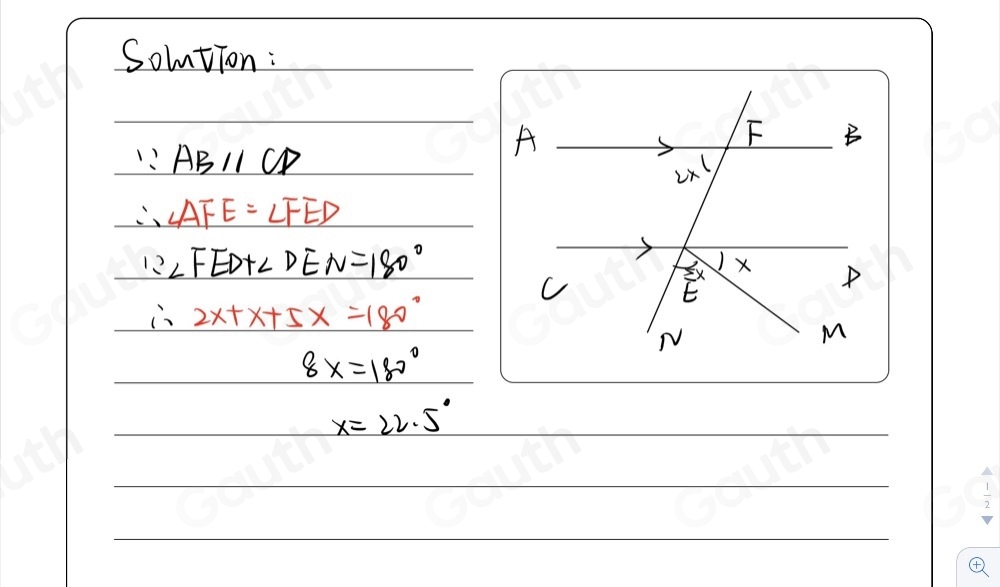 Solution:
∵ AB // CD
∴ ∠AFE = ∠FED
∵ ∠FED+∠DEN=180°
∴ 2x+x+5x=180°
8x=180°
x=22.5°
A
F
B
2x
C
5x
x
E
D
N
M
1
2
Gauth